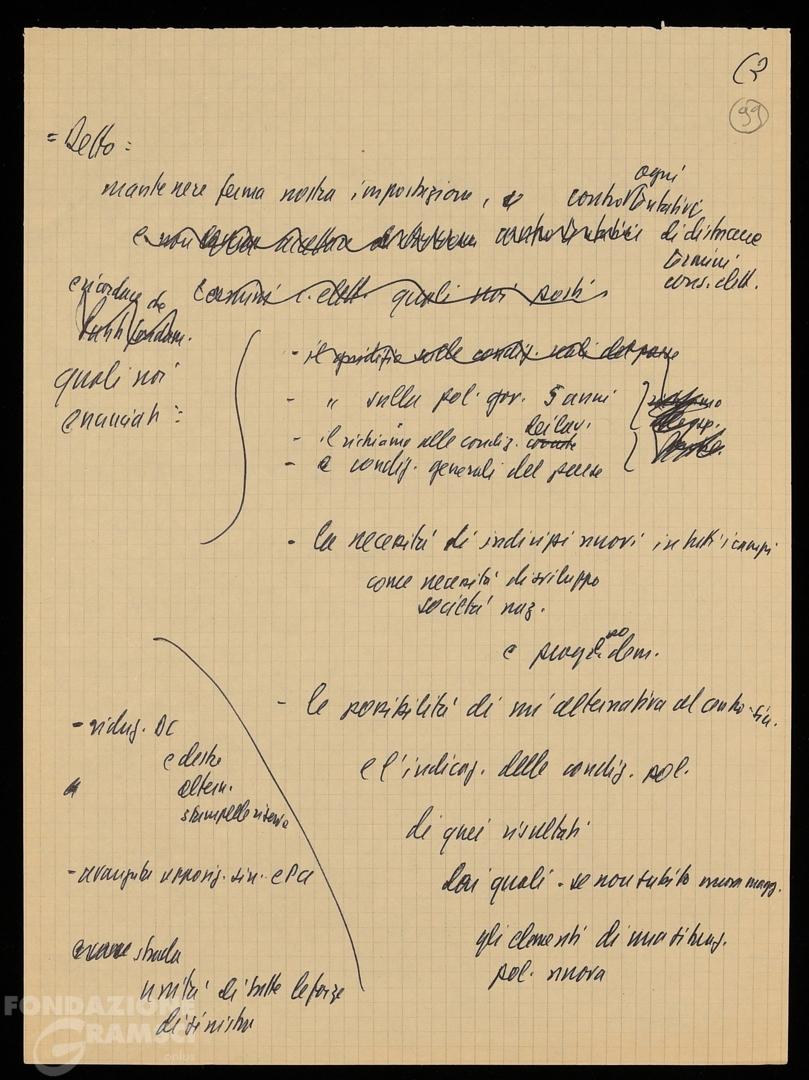 (3
99
= Detto =
mantenere ferma nostra impostazione, e contro ogni tentativi
di distrarre
termini
cons. elett.
termini elett. quali noi posti
e ricordare da
tutti fondam.
quali noi
enunciati =
- il giudizio sulle condiz. reali del paese
- " sulla pol. gov. 5 anni
- il richiamo alle condiz. dei lav.
- e condiz. generali del paese
- la necessità di indirizzi nuovi in tutti i campi
come necessità di sviluppo
società naz.
e progresso dem.
- la possibilità di un'alternativa al centro-sin.
e l'indicaz. delle condiz. pol.
di quei risultati
dai quali - se non subito nuova magg.
gli elementi di una situaz.
pol. nuova
- riduz. DC
e destre
altern.
stampelle riserva
- avanzata opposiz. sin. e PCI
strada
unità di tutte le forze
di sinistra
FONDAZIONE
GRAMSCI
onlus